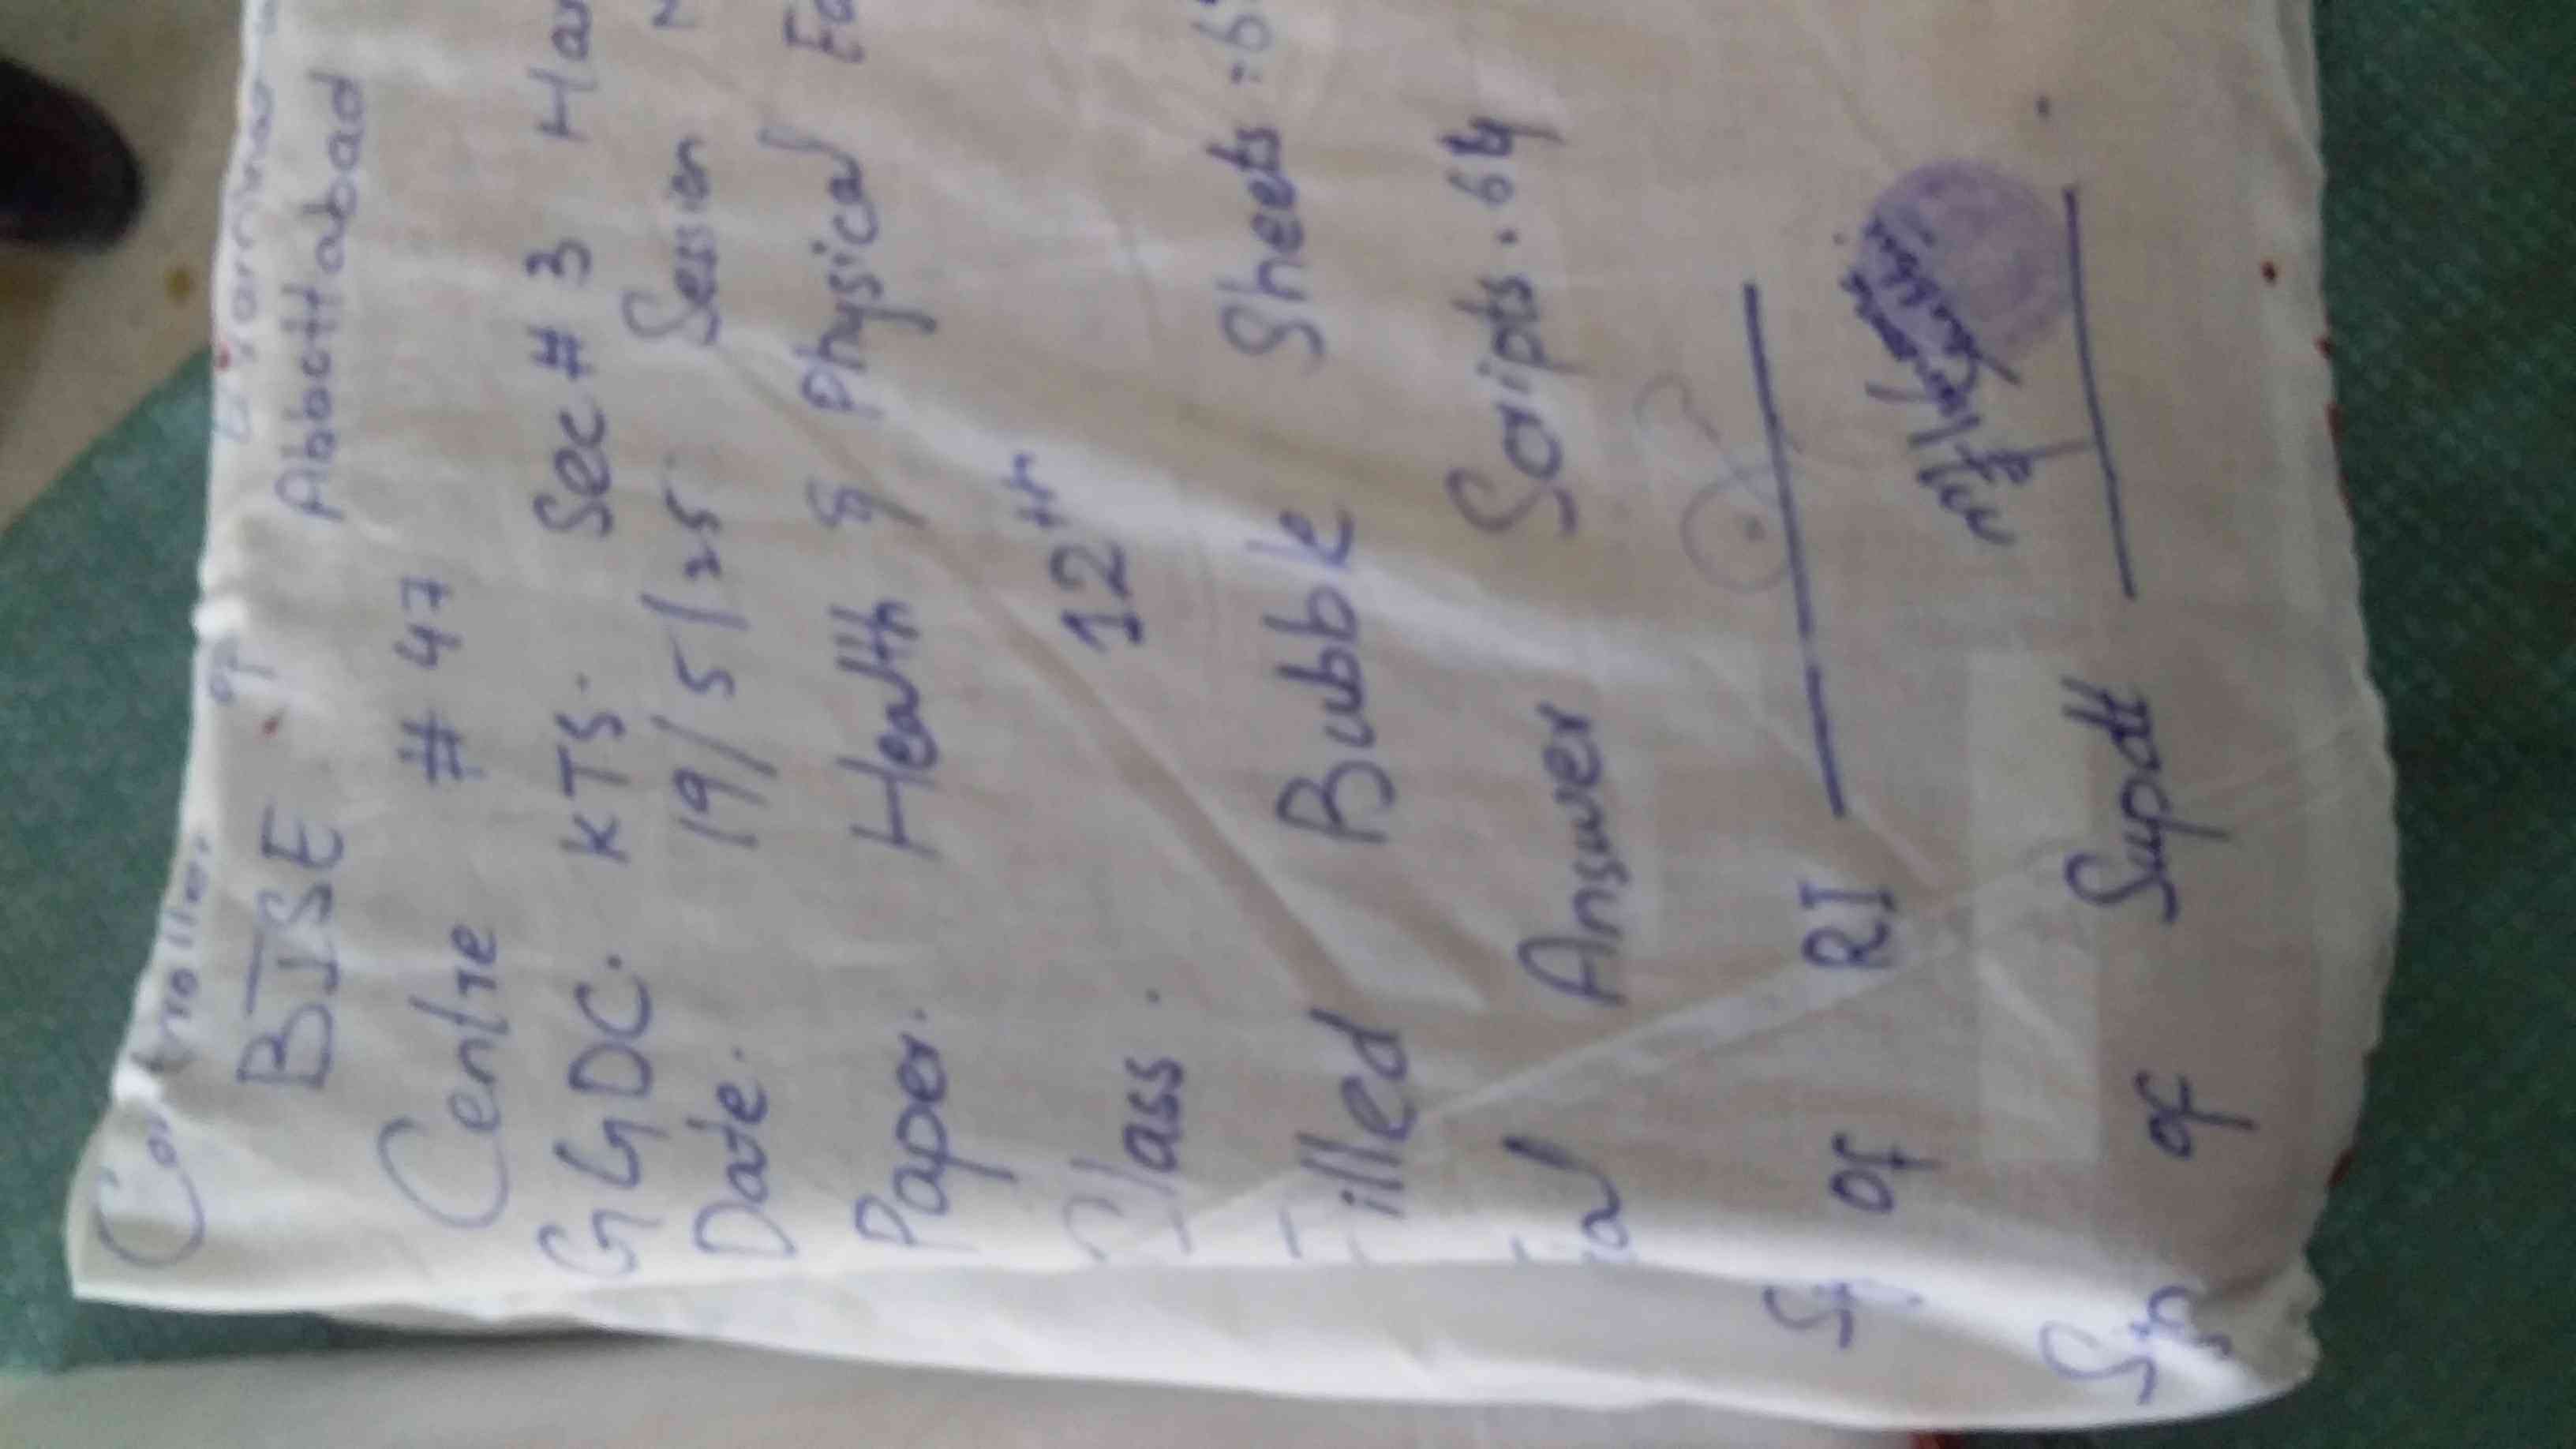 Controller of Examinar
BISE Abbottabad
Centre # 47
GGDC. KTS. Sec # 3 Har
Date. 19/5/25 Session
Paper. Health & Physical Ed
Class. 12th
Filled Bubble Sheets
Answer Scripts. 64
of RI
Sig of Supdt